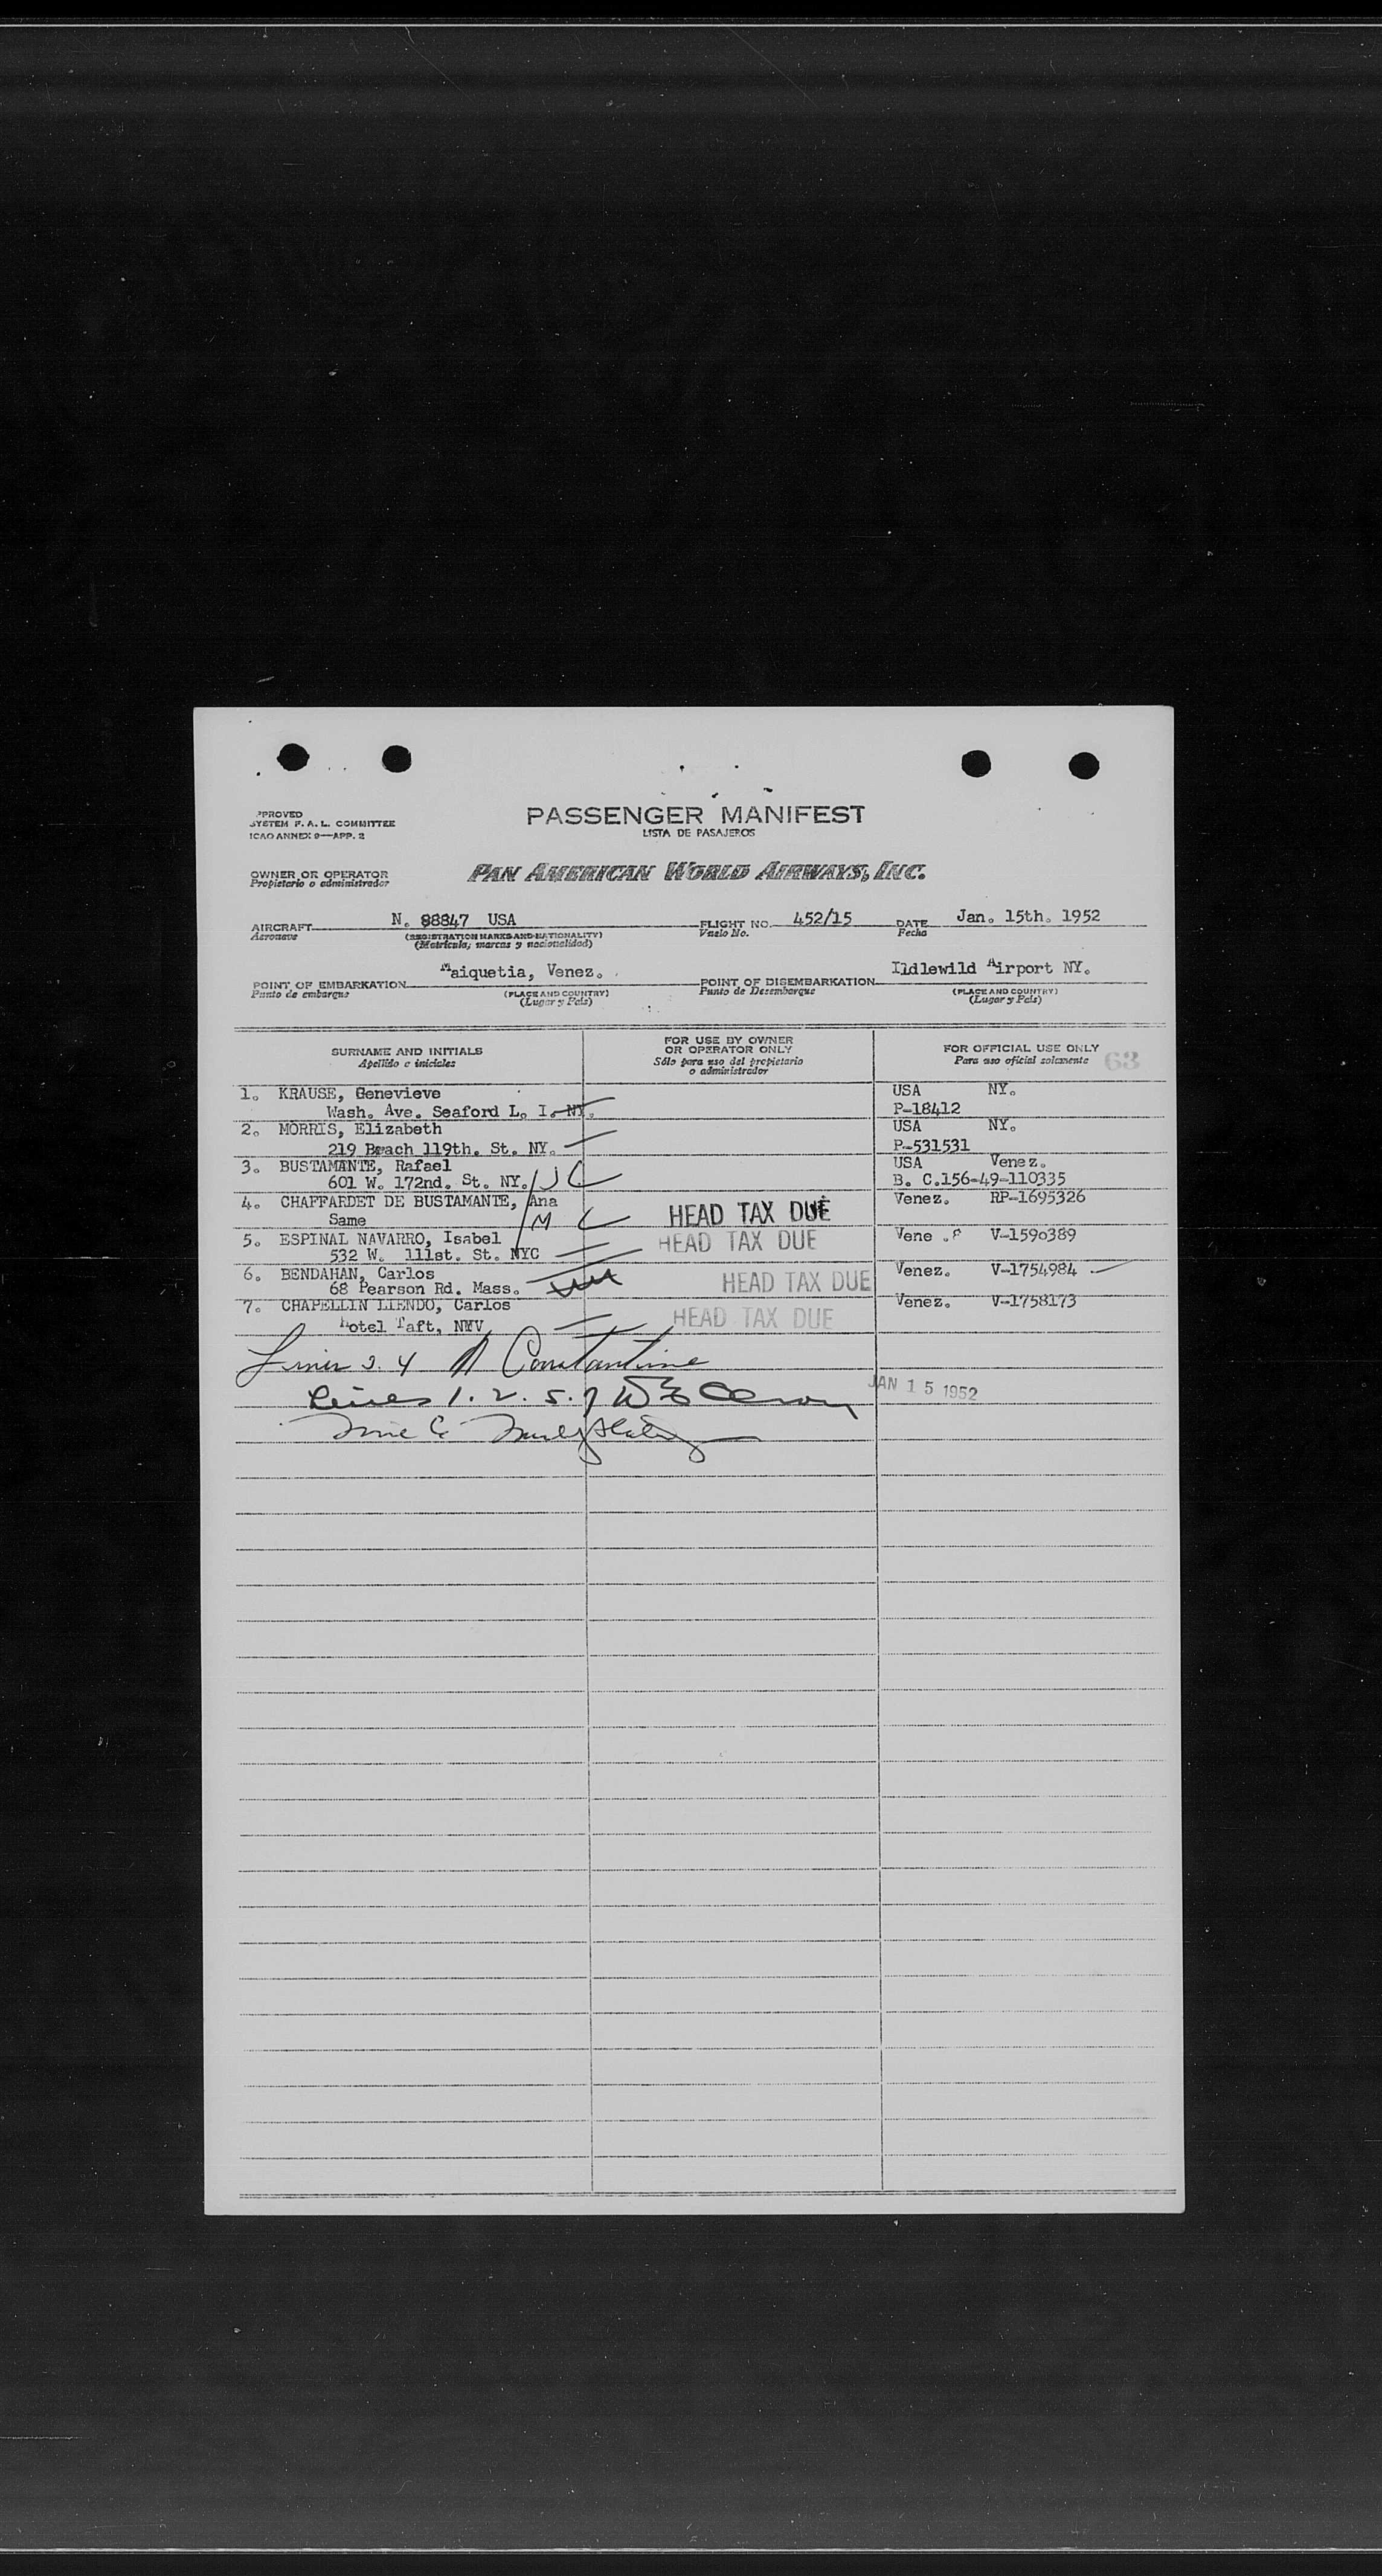 PPROVED
SYSTEM F. A. L. COMMITTEE
ICAO ANNEX 9—APP. 2
PASSENGER MANIFEST
LISTA DE PASAJEROS
OWNER OR OPERATOR
Propietario o administrador
PAN AMERICAN WORLD AIRWAYS, INC.
AIRCRAFT N. 88847 USA FLIGHT NO. 452/15 DATE Jan. 15th. 1952
Aeronave (REGISTRATION MARKS AND NATIONALITY) Vuelo No. Fecha
(Matrícula, marcas y nacionalidad)
POINT OF EMBARKATION Maiquetia, Venez. POINT OF DISEMBARKATION Ildlewild Airport NY.
Punto de embarque (PLACE AND COUNTRY) Punto de Desembarque (PLACE AND COUNTRY)
(Lugar y País) (Lugar y País)
SURNAME AND INITIALS
Apellido e iniciales
FOR USE BY OWNER
OR OPERATOR ONLY
Sólo para uso del propietario
o administrador
FOR OFFICIAL USE ONLY
Para uso oficial solamente 63
1. KRAUSE, Genevieve USA NY.
Wash. Ave. Seaford L. I. NY. P-18412
2. MORRIS, Elizabeth USA NY.
219 Beach 119th. St. NY. P-531531
3. BUSTAMANTE, Rafael USA Venez.
601 W. 172nd. St. NY. B. C.156-49-110335
4. CHAFFARDET DE BUSTAMANTE, Ana Venez. RP-1695326
Same M HEAD TAX DUE
5. ESPINAL NAVARRO, Isabel HEAD TAX DUE Vene . V-1590389
532 W. 111st. St. NYC
6. BENDAHAN, Carlos HEAD TAX DUE Venez. V-1754984
68 Pearson Rd. Mass.
7. CHAPELLIN LIENDO, Carlos HEAD TAX DUE Venez. V-1758173
Hotel Taft, NYV
3. 4 Constantine
Lines 1. 2. 5. 7
JAN 15 1952